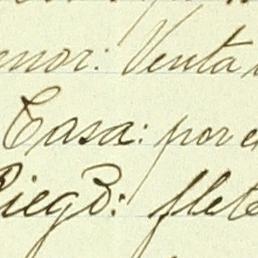 enor: Venta
Casa: por e
Riego: flete